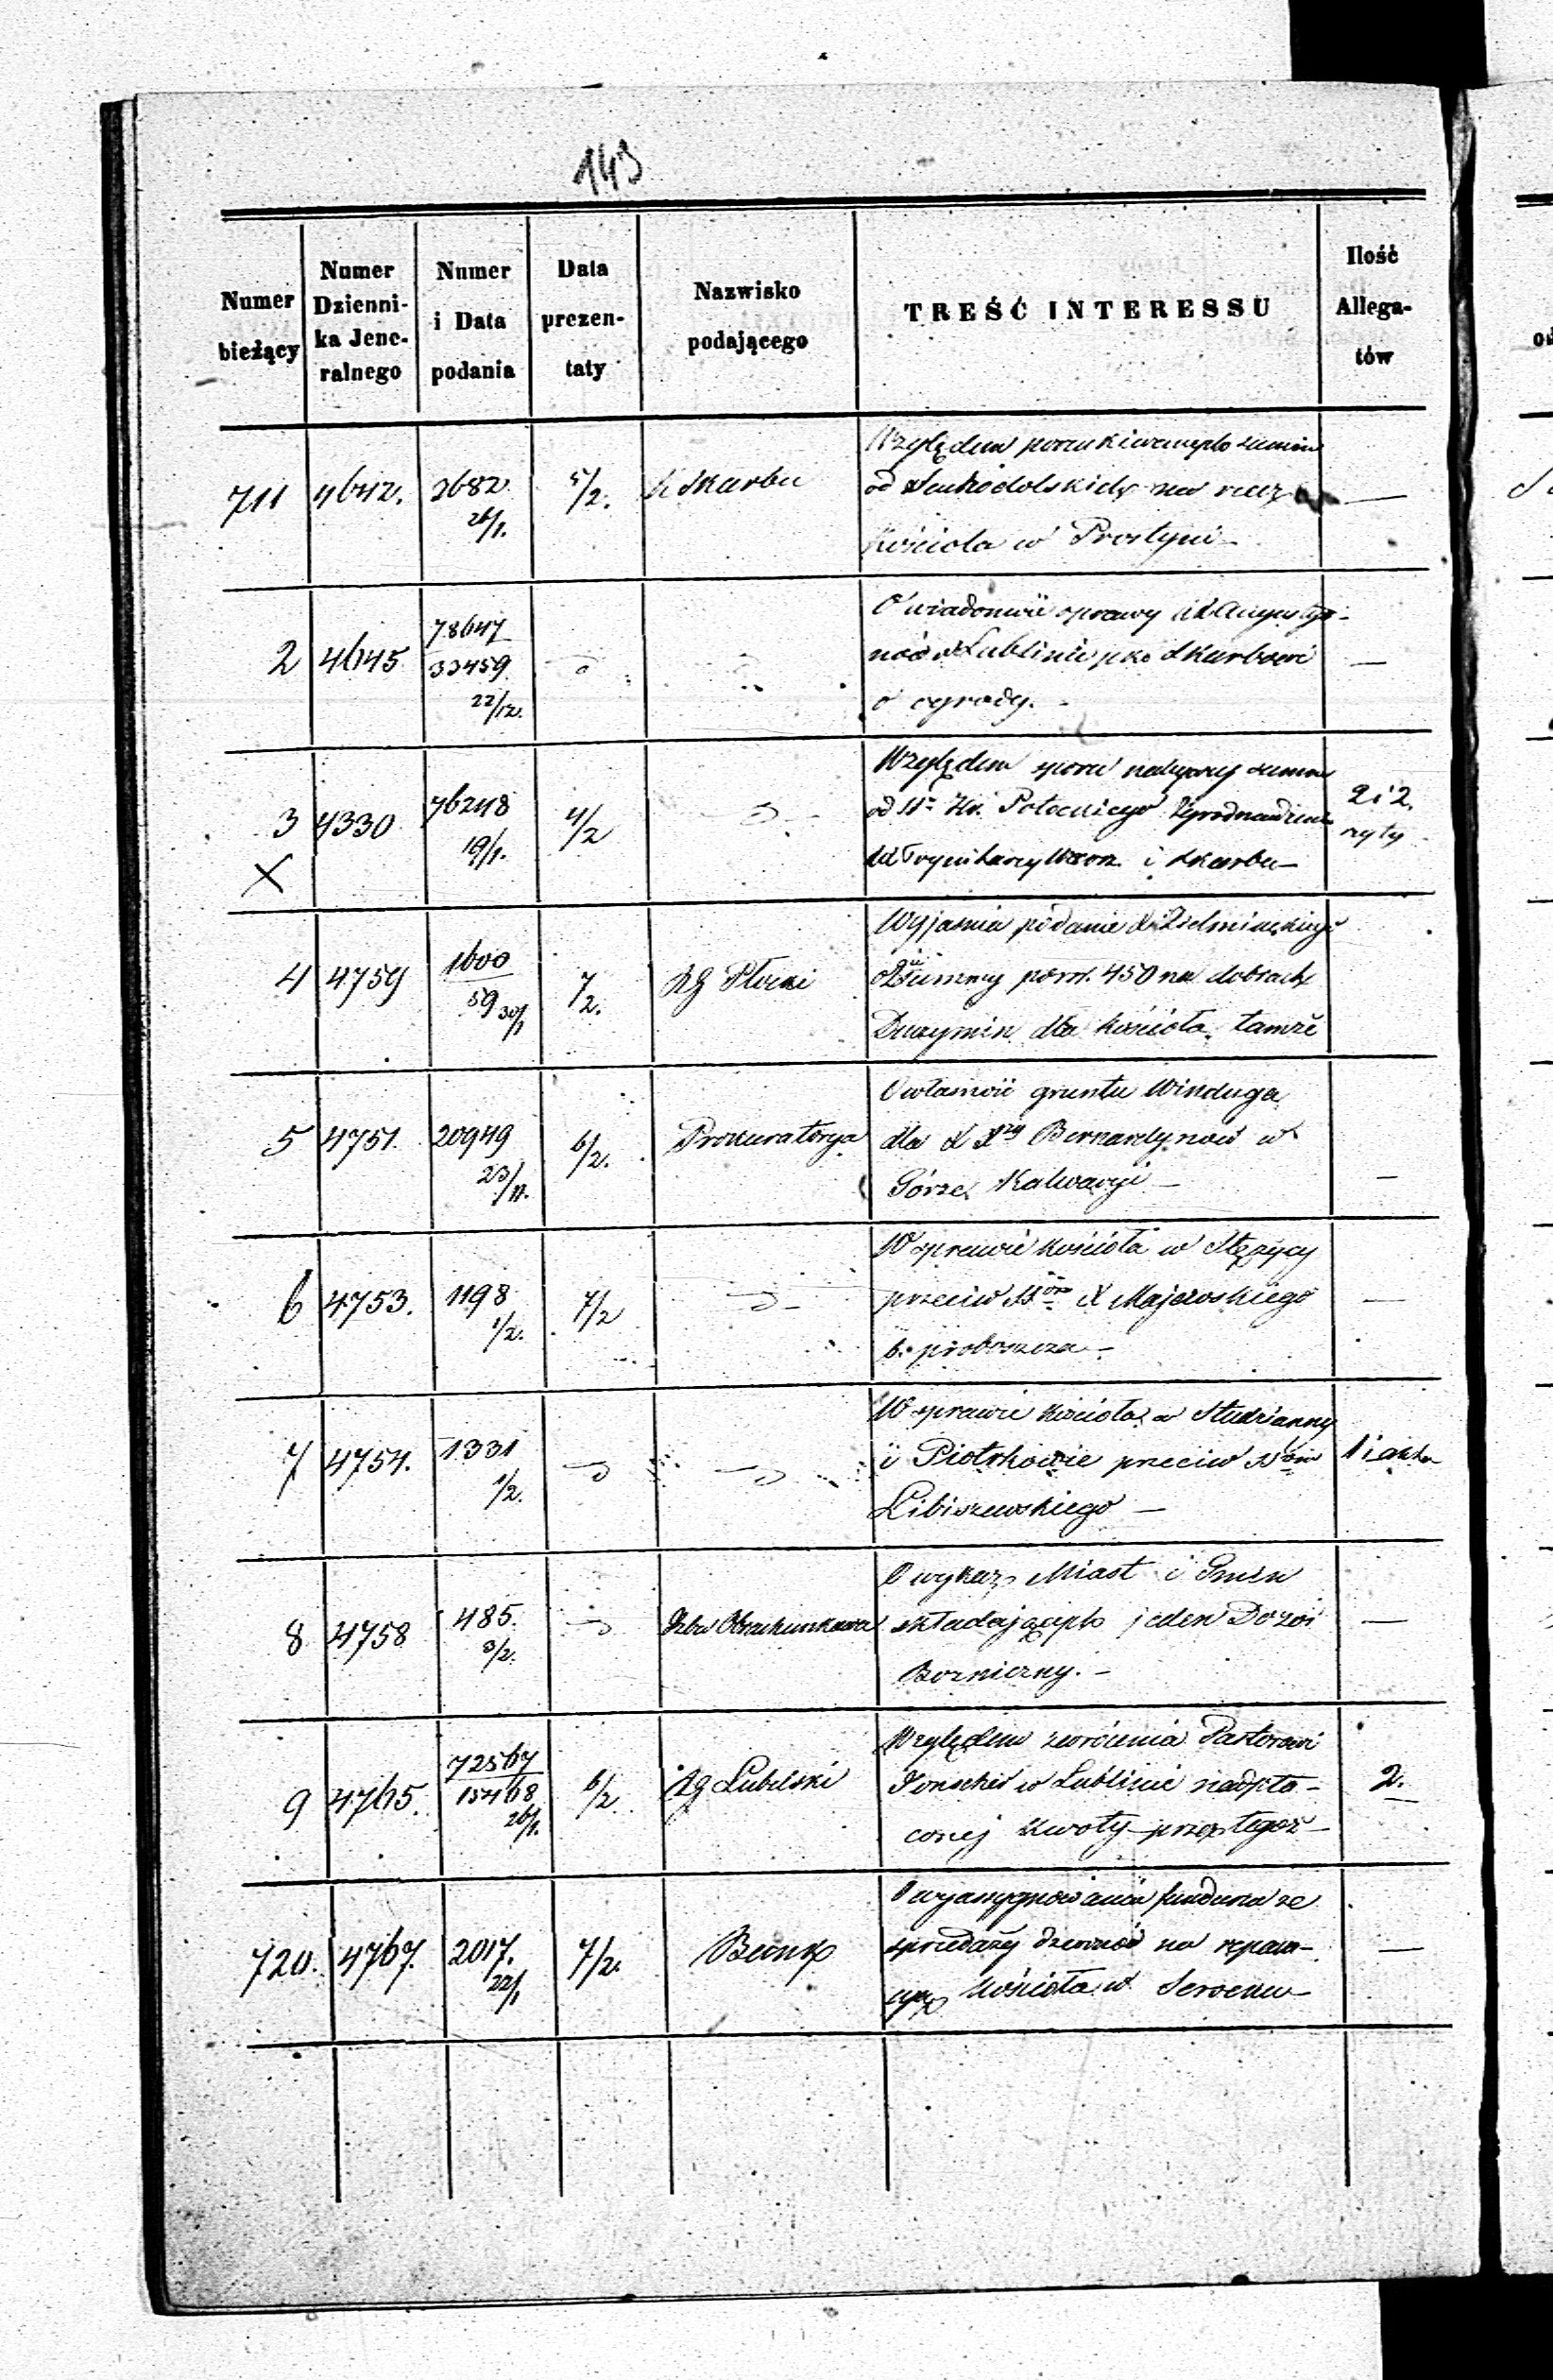 143
Numer bieżący
Numer Dzienni-ka Jene-ralnego
Numer i Data podania
Data prezen-taty
Nazwisko podającego
TREŚĆ INTERESSU
Ilość Allega-tów
711 4642. 2682 26/1. 5/2. K Skarbu
Względem poszukiwanych summ
od Suchodolskich na rzecz —
Kościoła w Prostyni —
2 4645 78647 33459 22/12.
O wiadomość sprawy XX Augustya-
nów w Lublinie pko Skarbowi —
o ogrody. —
3 4330 76248 19/1. 4/2
X
Względem sporu należącej summ 2 i 2.
od Hr. Potockiego
i Skarbu —
4 4759 1600 59 30/1 7/2. RG Płocki
Wyjaśnia podanie X
summy 450 na dobrach
dla Kościoła tamże
5 4751. 20949 23/11. 6/2. Prokuratorya
O własność gruntu Winduga
dla X Xzy Bernardynów w
Górze Kalwaryi — —
6 4753. 1198 1/2. 7/2
W sprawie Kościoła w Stężycy
przeciw SSom X Majewskiego —
b. proboszcza —
7 4754. 1331 1/2.
W sprawie Kościoła w Studzianny
i Piotrkowie przeciw SSom 1 i akta
Libiszewskiego —
8 4758 485. 3/2. Izba Obrachunkowa
O wykaz Miast i Gmin
składających jeden Dozór —
Bożniczny. —
9 4765. 72567 15468 26/1. 6/2 RG Lubelski
Względem zwrócenia Pastorowi
w Lublinie nadpła- 2.
conej kwoty przez tegoż —
720. 4767. 2017. 22/1 7/2.
O wyassygnowanie funduszu ze
sprzedaży drzewa na repara- —
cyę Kościoła w Serocku —